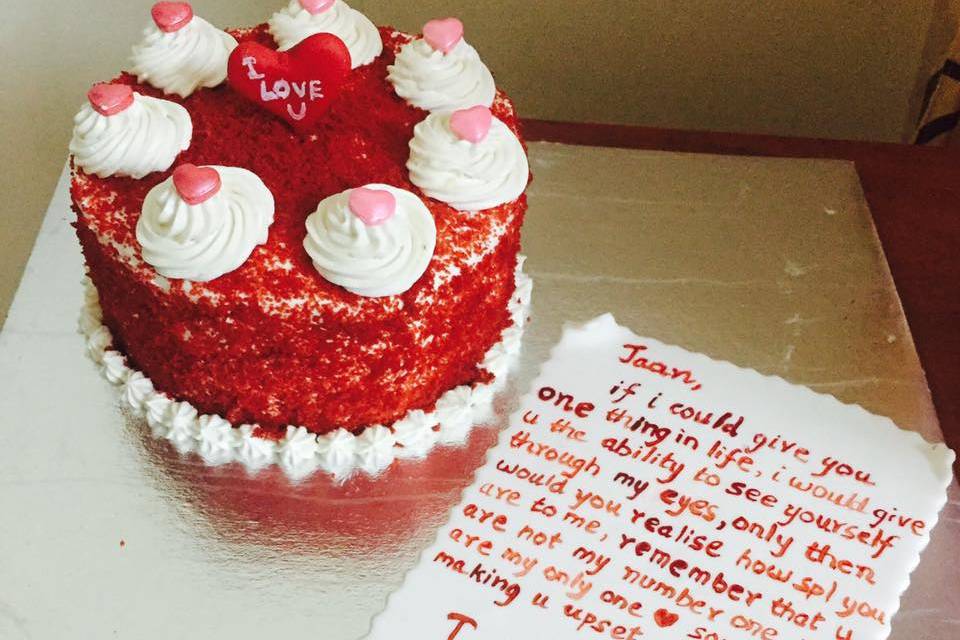 I
LOVE
U
Jaan,
if i could give you
one thing in life, i would give
u the ability to see yourself
through my eyes, only then
would you realise how spl you
are to me, remember that u
are not my number one
are my only one ♥
making u upset